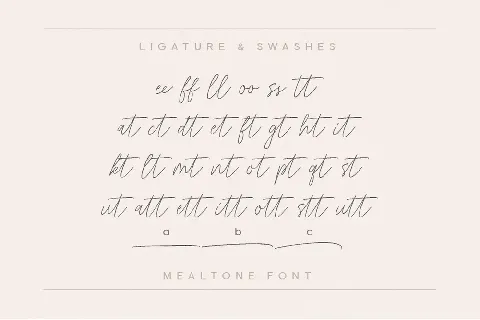 LIGATURE & SWASHES
ee ff ll oo ss tt
at ct dt et ft gt ht it
kt lt mt nt ot pt qt st
ut att ett itt ott stt utt
a b c
MEALTONE FONT